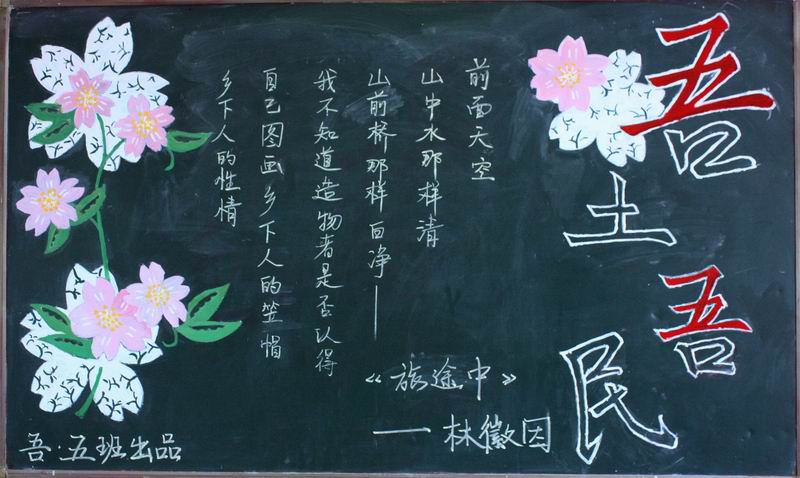 吾土吾民
前面天空
山中水那样清
山前桥那样白净——
我不知道造物者是否认得
自己图画乡下人的笠帽
乡下人的性情
《旅途中》
——林徽因
吾·五班出品